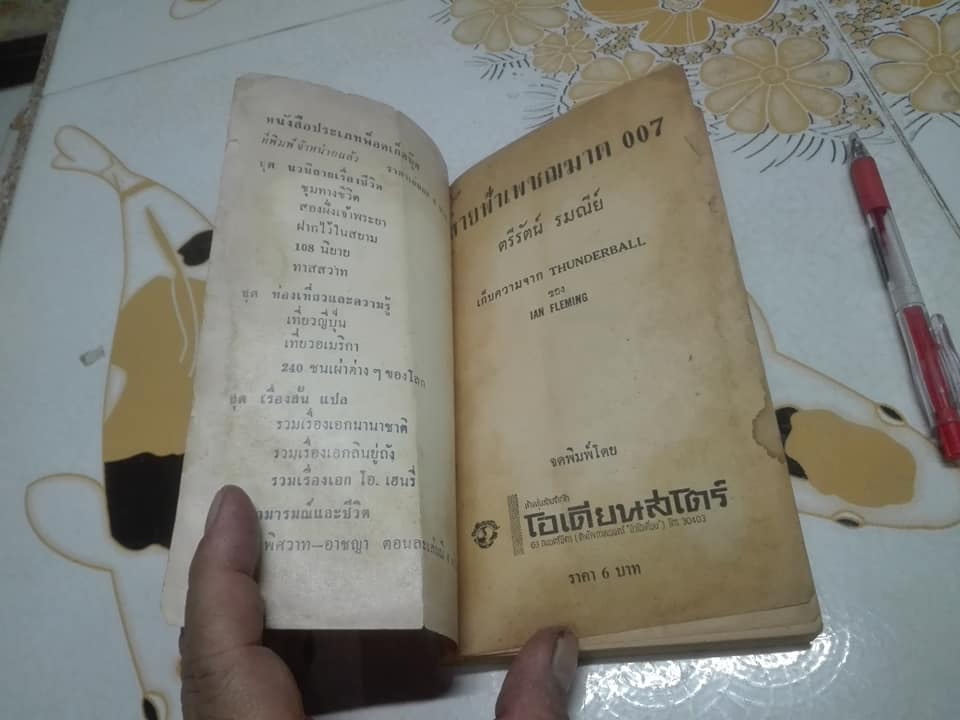 หนังสือประเภทพ็อคเก็ตบุ๊ค
ที่พิมพ์จำหน่ายแล้ว
ชุด นวนิยายเรื่องชีวิต
ชุมทางชีวิต
สองฝั่งเจ้าพระยา
ฝากไว้ในสยาม
108 นิยาย
ทาสสวาท
ชุด ท่องเที่ยวและความรู้
เที่ยวญี่ปุ่น
เที่ยวอเมริกา
240 ชนเผ่าต่าง ๆ ของโลก
ชุด เรื่องสั้น แปล
รวมเรื่องเอกนานาชาติ
รวมเรื่องเอกลินยู่ถัง
รวมเรื่องเอก โอ. เฮนรี่
ามารมณ์และชีวิต
พิศวาท—อาชญา
สายฟ้าเพชฌฆาต 007
ตรีรัตน์ รมณีย์
เก็บความจาก THUNDERBALL
ของ
IAN FLEMING
จัดพิมพ์โดย
โอเดียนสโตร์
ราคา 6 บาท